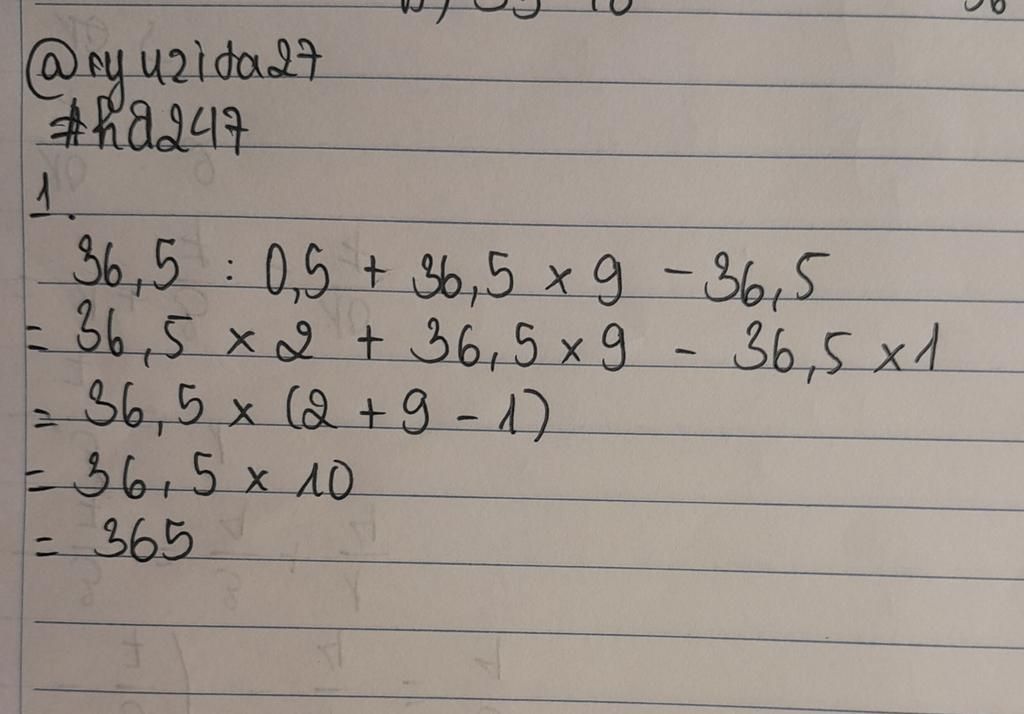 @ryuzida27
#hd247
1.
36,5 : 0,5 + 36,5 x 9 - 36,5
= 36,5 x 2 + 36,5 x 9 - 36,5 x 1
= 36,5 x (2 + 9 - 1)
= 36,5 x 10
= 365